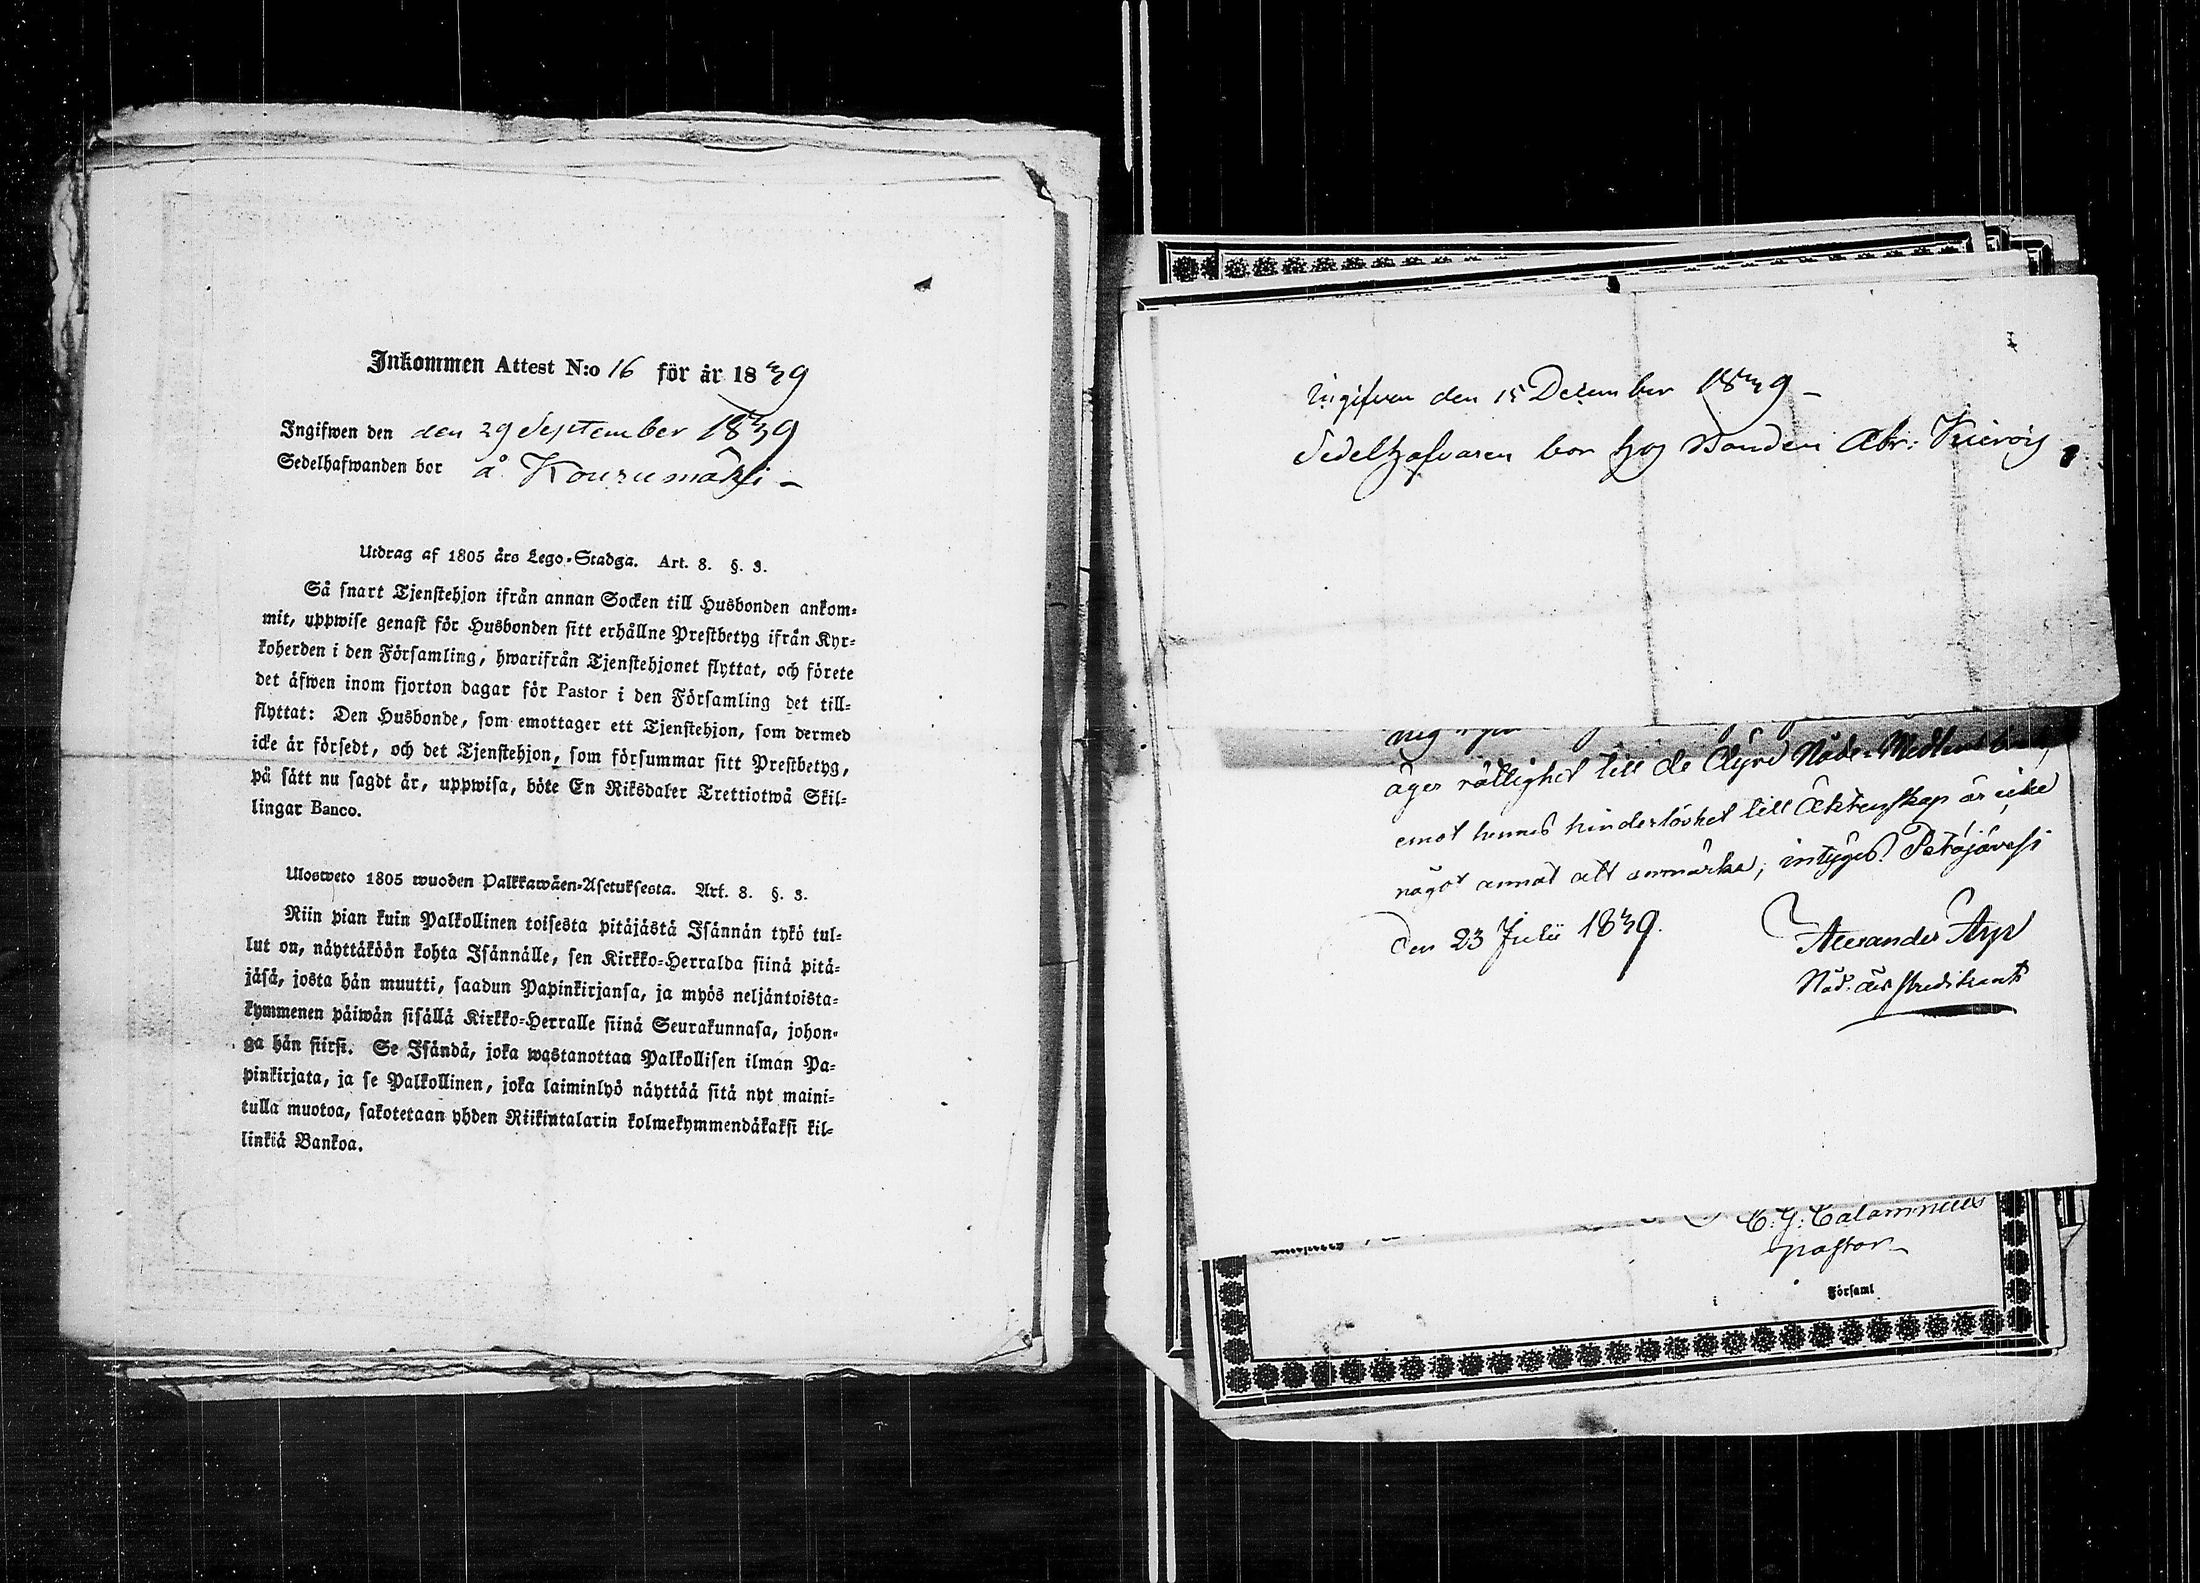 Inkommen Attest N:o 16 för år 1839
Ingifwen den den 29 September 1839
Sedelhafwanden bor å Kourumäki
Utdrag af 1805 års Lego-Stadga. Art. 8. §. 3.
Så snart Tjenstehjon ifrån annan Socken till Husbonden ankom-
mit, uppwise genast för Husbonden sitt erhållne Prestbetyg ifrån Kyr-
koherden i den Församling, hwarifrån Tjenstehjonet flyttat, och förete
det äfwen inom fjorton dagar för Pastor i den Församling det till-
flyttat: Den Husbonde, som emottager ett Tjenstehjon, som dermed
icke är försedt, och det Tjenstehjon, som försummar sitt Prestbetyg,
på sätt nu sagdt är, uppwisa, böte En Riksdaler Trettiotwå Skil-
lingar Banco.
Ulosweto 1805 wuoden Palkkawäen-Asetuksesta. Art. 8. §. 3.
Niin pian kuin Palkollinen toisesta pitäjästä Isännän tykö tul-
lut on, näyttäköön kohta Isännälle, sen Kirkko-Herralda siinä pitä-
jäsä, josta hän muutti, saadun Papinkirjansa, ja myös neljäntoista-
kymmenen päiwän sisällä Kirkko-Herralle siinä Seurakunnasa, johon-
ga hän siirsi. Se Isändä, joka wastanottaa Palkollisen ilman Pa-
pinkirjata, ja se Palkollinen, joka laiminlyö näyttää sitä nyt maini-
tulla muotoa, sakotetaan yhden Riikintalarin kolmekymmendäkaksi kil-
linkiä Bankoa.
Ingifven den 15 December 1839
Sedelhafvaren bor hos Bonden Abr:
äger rättighet till de Nåde-Medlens bruk,
emot hennes hinderlöshet till Äktenskap är icke
något annat att anmärka, intygas. Petäjävesi
den 23 Julii 1839.
Alexander Arge
C. G. Calamnius
pastor
Församl